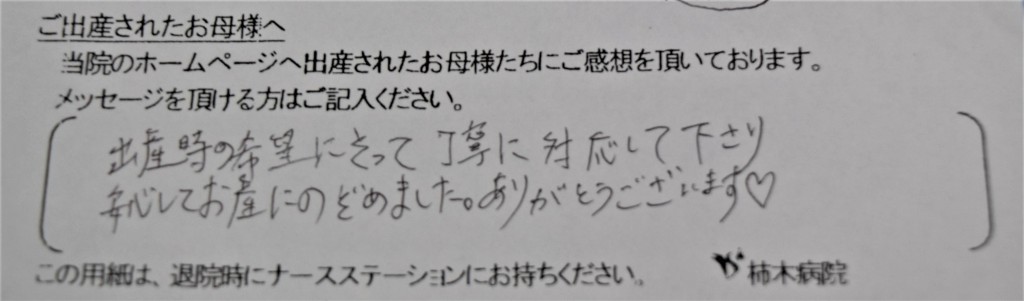 ご出産されたお母様へ
当院のホームページへ出産されたお母様たちにご感想を頂いております。
メッセージを頂ける方はご記入ください。
出産時の希望にそって丁寧に対応して下さり
安心してお産にのぞめました。ありがとうございます♡
この用紙は、退院時にナースステーションにお持ちください。
柿木病院